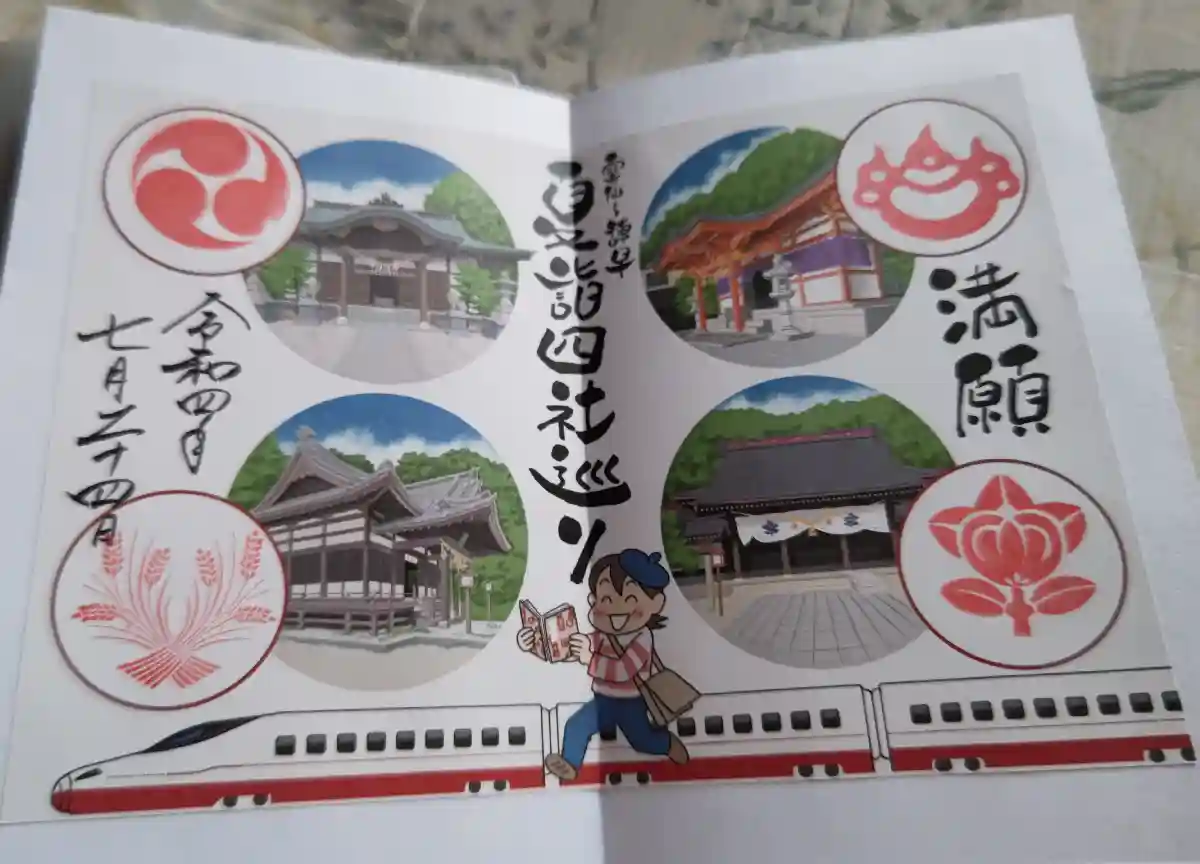 満願
雲仙〜諫早
夏詣四社巡り
令和四年
七月二十四日